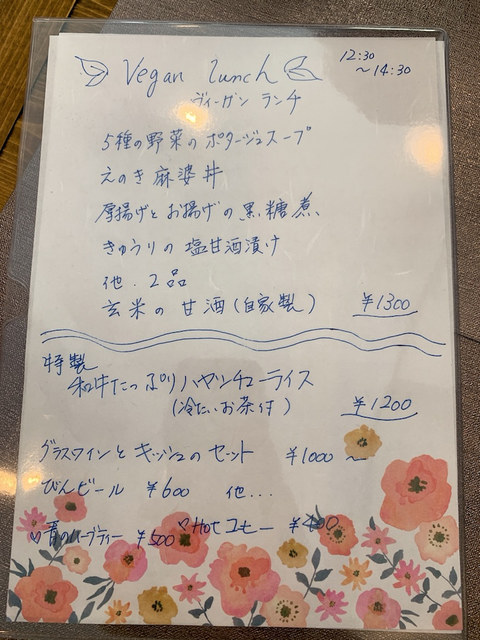 Vegan lunch
12:30
～14:30
ヴィーガン ランチ
5種の野菜のポタージュスープ
えのき麻婆丼
厚揚げとお揚げの黒糖煮
きゅうりの塩甘酒漬け
他．2品
玄米の甘酒(自家製) ¥1300
特製
和牛たっぷりハヤシチューライス
(冷たいお茶付) ¥1200
グラスワインとキッシュのセット ¥1000～
びんビール ¥600 他...
♡Hotコーヒー ¥400
♡青のハーブティー ¥500